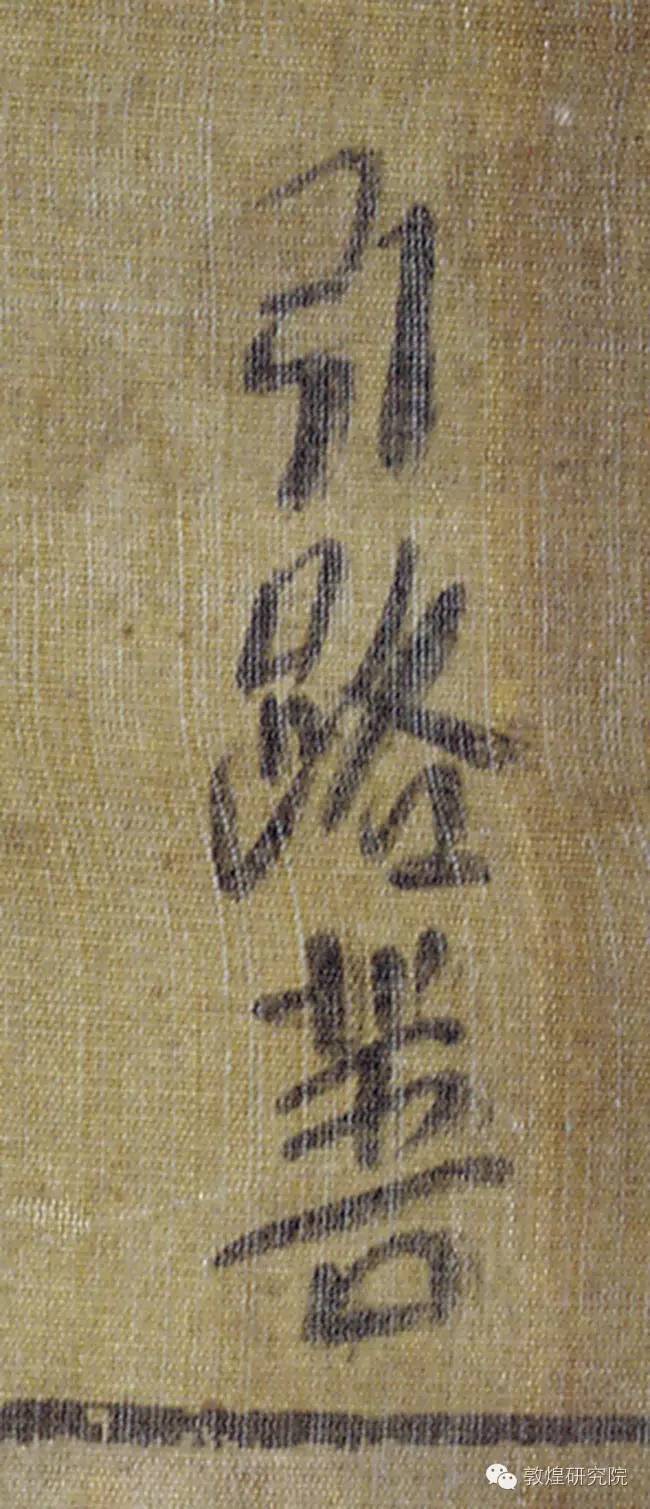 引路菩
敦煌研究院